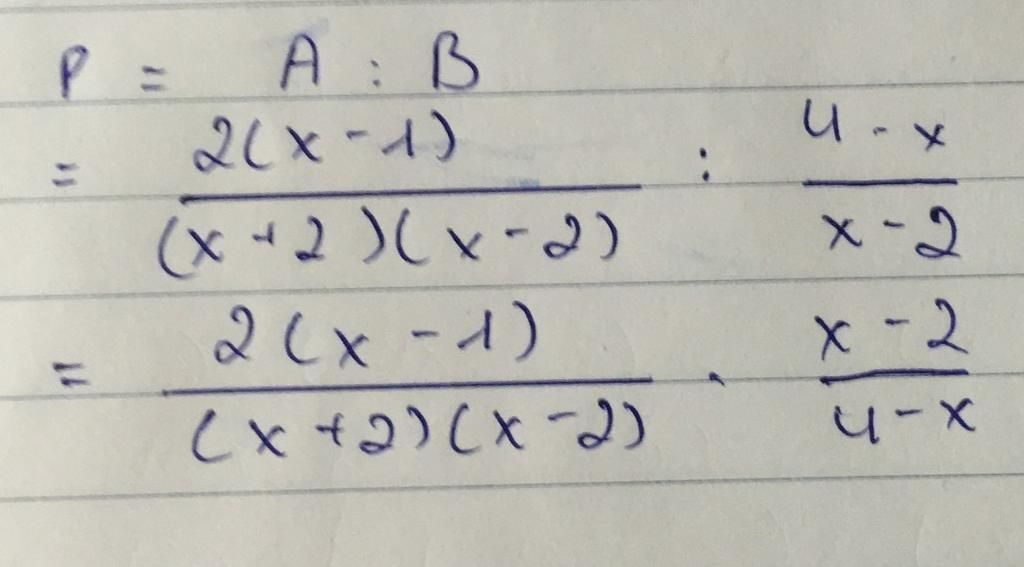 P = A : B
= 2(x - 1) / (x + 2)(x - 2) : 4 - x / x - 2
= 2(x - 1) / (x + 2)(x - 2) . x - 2 / 4 - x